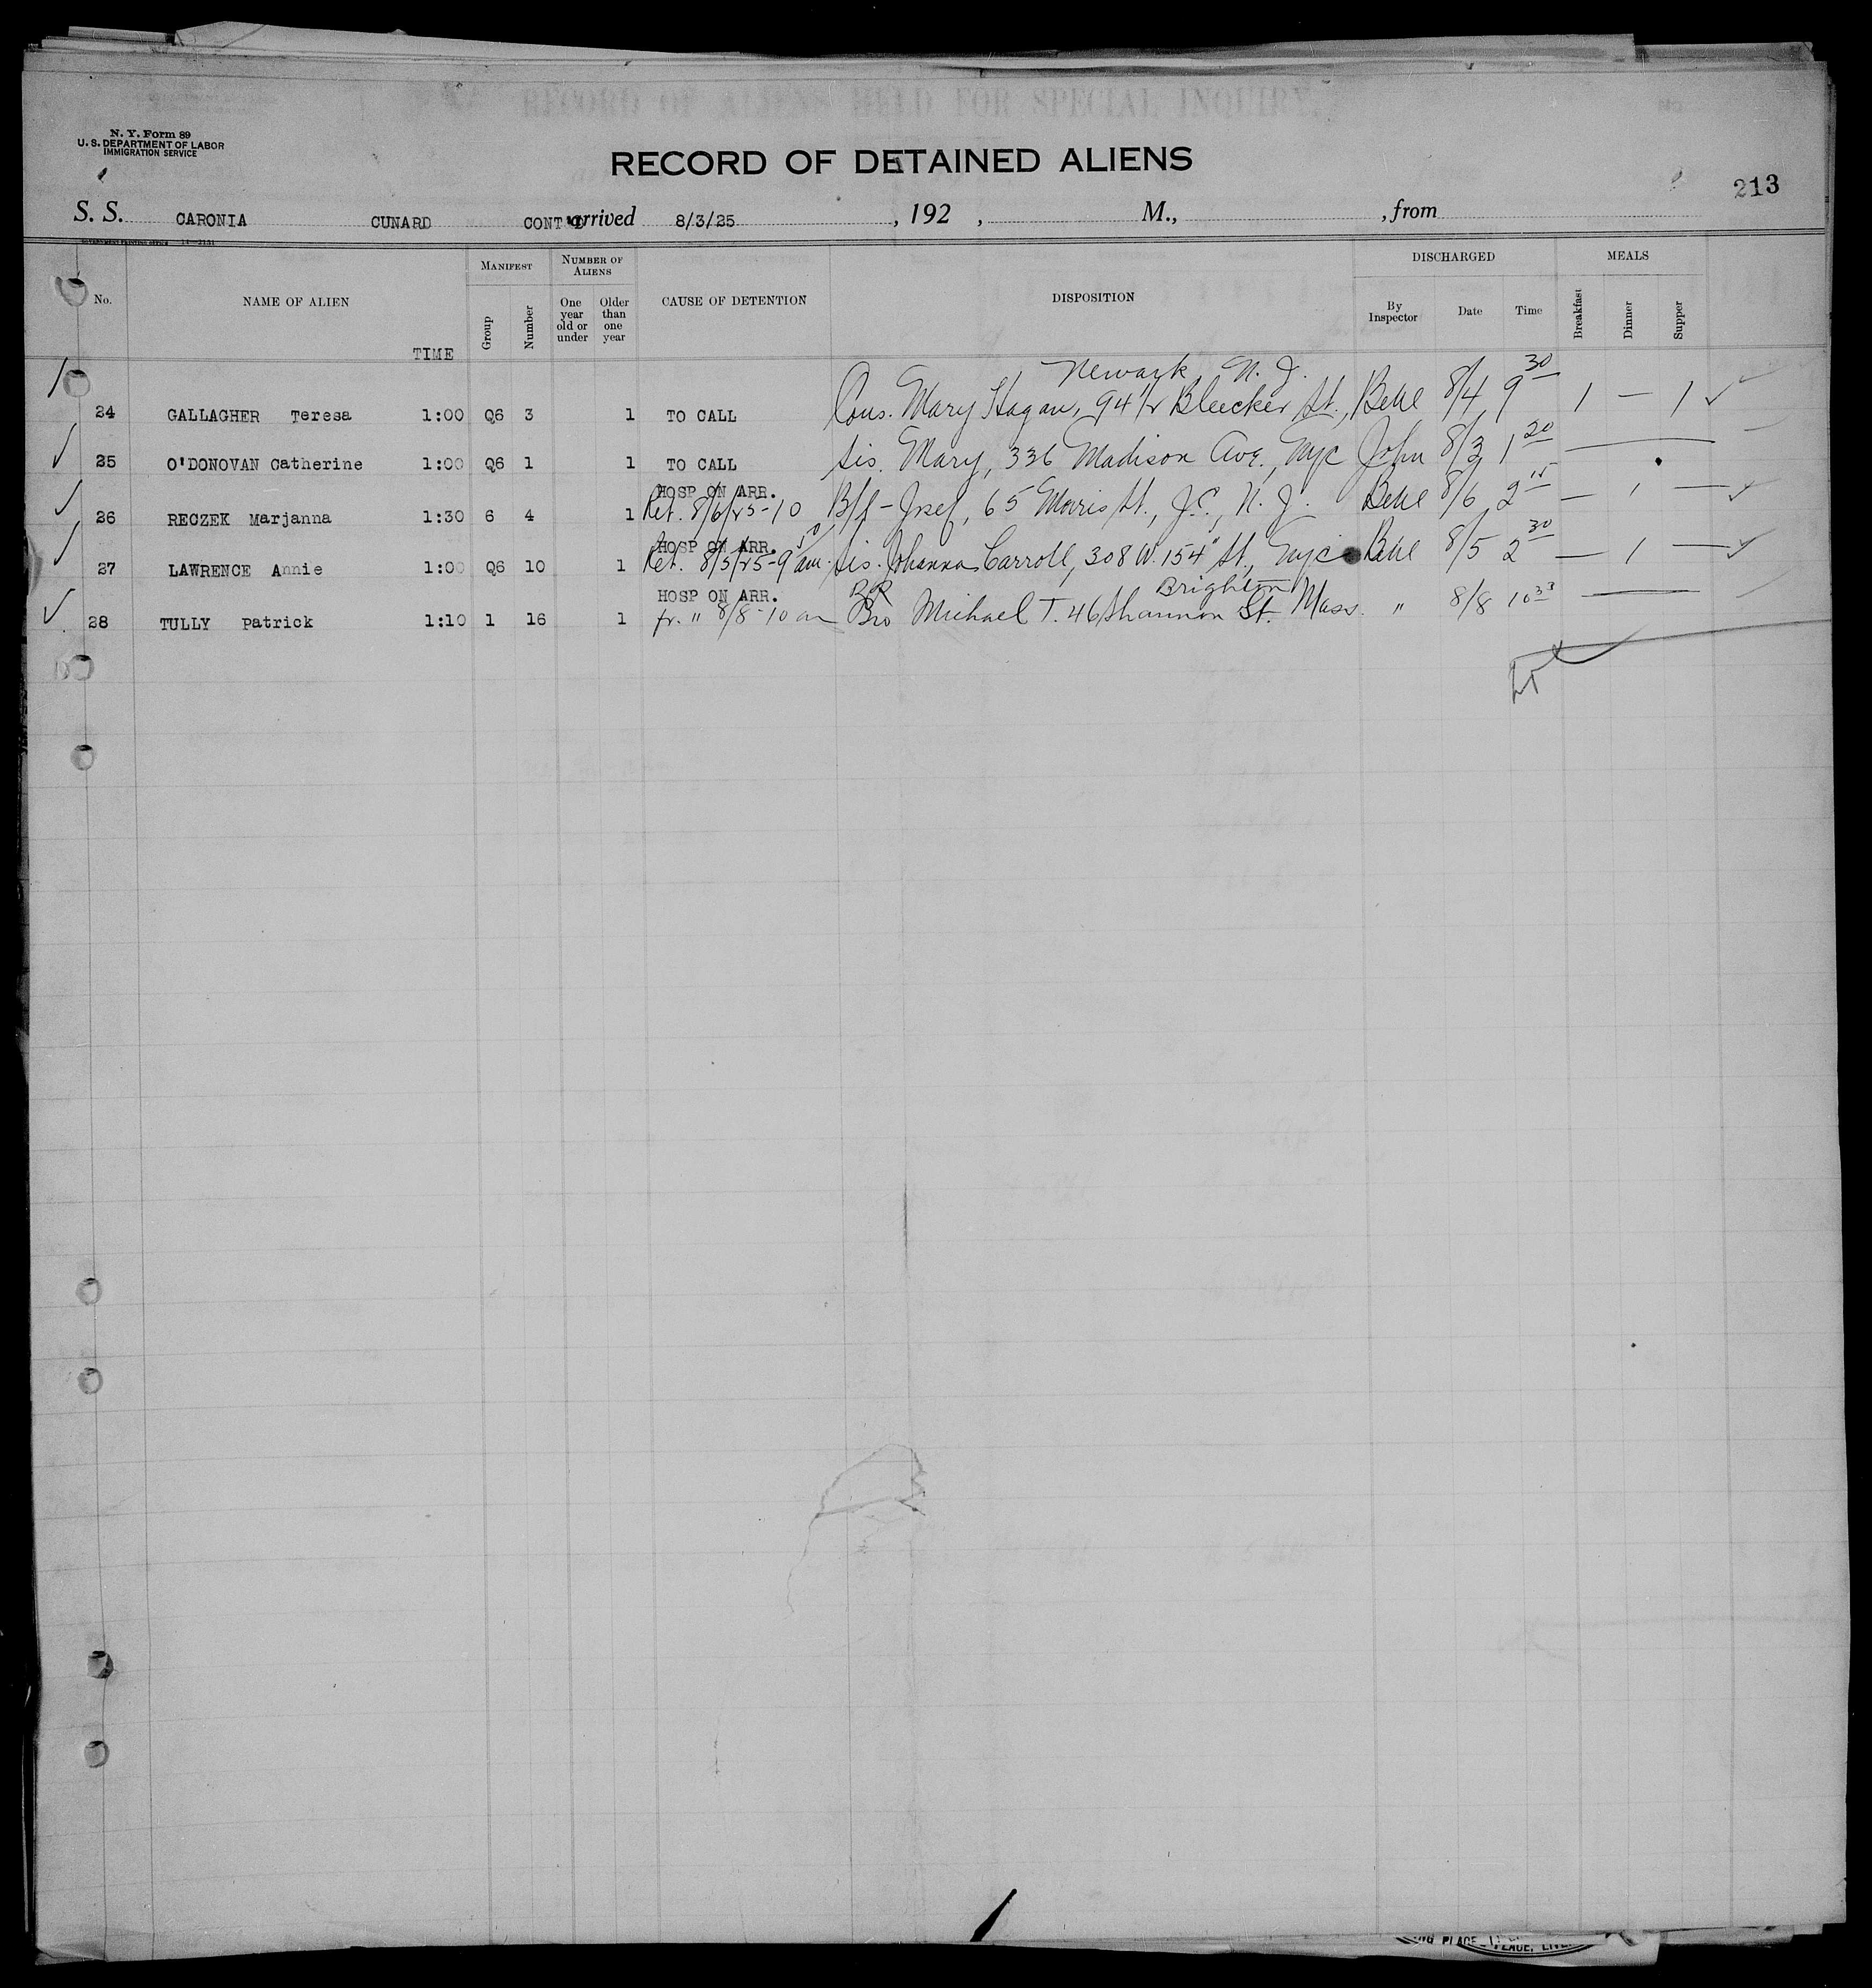 RECORD OF ALIENS HELD FOR SPECIAL INQUIRY.
N. Y. Form 89
U. S. DEPARTMENT OF LABOR
IMMIGRATION SERVICE
RECORD OF DETAINED ALIENS
213
S. S. CARONIA CUNARD CONT'D arrived 8/3/25 , 192 , M., , from
MANIFEST NUMBER OF ALIENS DISCHARGED MEALS
No. NAME OF ALIEN TIME Group Number One year old or under Older than one year CAUSE OF DETENTION DISPOSITION By Inspector Date Time Breakfast Dinner Supper
Newark, N. J.
24 GALLAGHER Teresa 1:00 Q6 3 1 TO CALL Cous. Mary Hagan, 94½ Bleecker St., 8/4 9 30 1 — 1 ✓
25 O'DONOVAN Catherine 1:00 Q6 1 1 TO CALL Sis. Mary, 336 Madison Ave., NYC John 8/3 1 20
HOSP ON ARR.
26 RECZEK Marjanna 1:30 6 4 1 Ret. 8/6/25-10 B/f - Josef, 65 Morris St., J.C., N. J. 8/6 2 15 — 1 — ✓
HOSP ON ARR.
27 LAWRENCE Annie 1:00 Q6 10 1 Ret. 8/5/25-9 50 am. Sis. Johanna Carroll, 308 W. 154" St., NYC 8/5 2 30 — 1 — ✓
HOSP ON ARR. Brighton
28 TULLY Patrick 1:10 1 16 1 fr. " 8/8-10 am Bro Michael T. 46 Shannon St. Mass. " 8/8 10